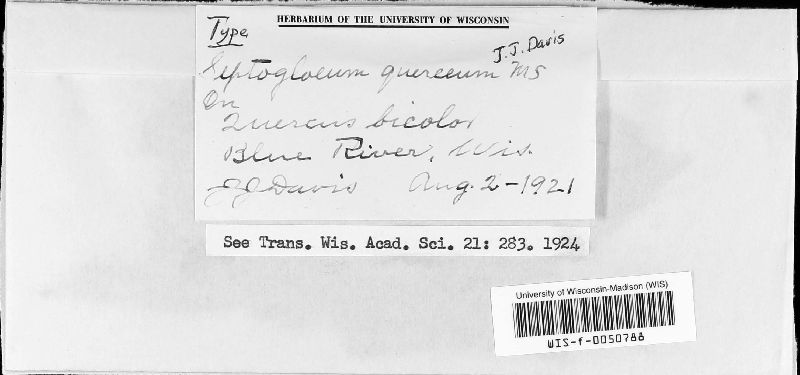 HERBARIUM OF THE UNIVERSITY OF WISCONSIN
Type
J.J. Davis
Septogloeum querceum MS
On
Quercus bicolor
Blue River, Wis.
JJDavis Aug. 2-1921
See Trans. Wis. Acad. Sci. 21: 283. 1924
University of Wisconsin-Madison (WIS)
WIS-f-0050788